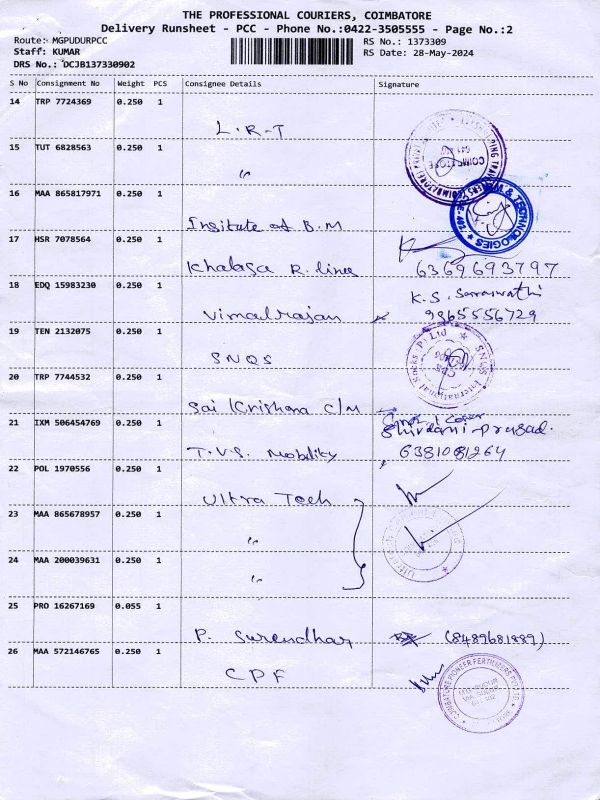 THE PROFESSIONAL COURIERS, COIMBATORE
Delivery Runsheet - PCC - Phone No.:0422-3505555 - Page No.:2
Route: MGPUDURPCC
RS No.: 1373309
Staff: KUMAR
RS Date: 28-May-2024
DRS No.: DCJB137330902
S No Consignment No Weight PCS Consignee Details Signature
14 TRP 7724369 0.250 1
L.R-T
15 TUT 6828563 0.250 1
"
16 MAA 865817971 0.250 1
Insitute of B.M
17 HSR 7078564 0.250 1
Khalasa R. lines 6369693797
18 EDQ 15983230 0.250 1
K.S. Saraswathi
Vimalrajan 9965556729
19 TEN 2132075 0.250 1
SNQS
SNQS International Socks (P) Ltd
20 TRP 7744532 0.250 1
Sai Krishna C/M
21 IXM 506454769 0.250 1
Prasad.
T.V.S. Mobility 6381081264
22 POL 1970556 0.250 1
Ultra Tech
23 MAA 865678957 0.250 1
"
24 MAA 200039631 0.250 1
"
25 PRO 16267169 0.055 1
P. Surendhar (8489681889)
26 MAA 572146765 0.250 1
CPF
COIMBATORE PIONEER FERTILIZERS PVT LTD